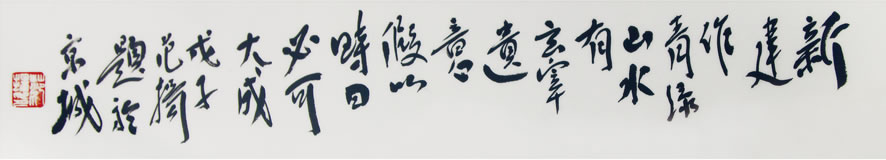 新
建
作
青绿
山水
有
玄宰
遺
意
假以
時日
必可
大成
戊子
范揚
題於
京城